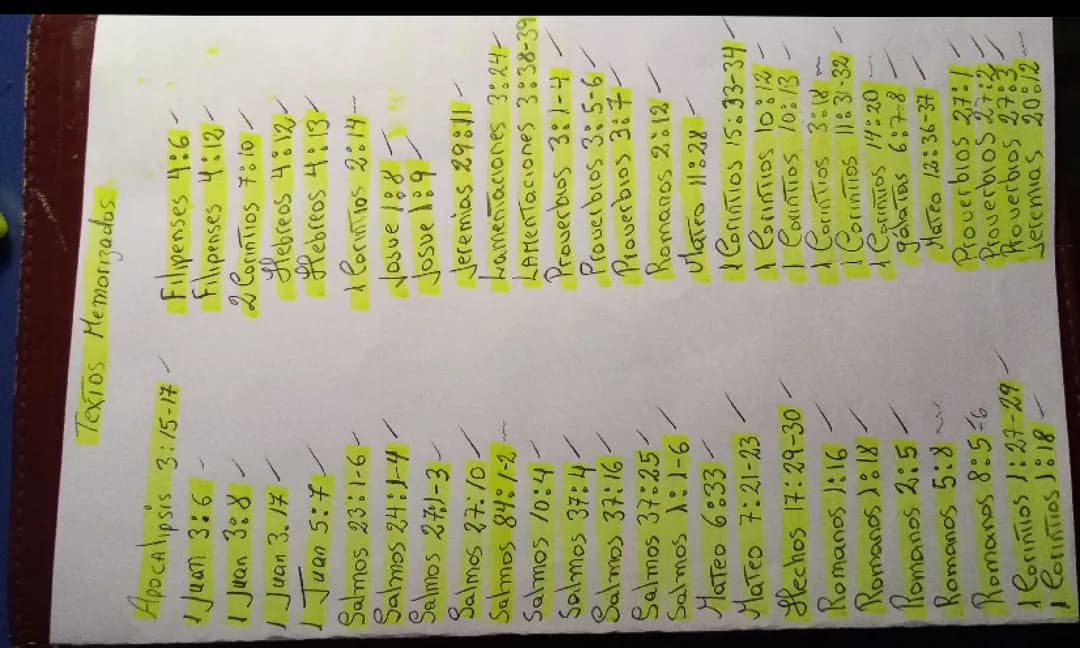 Textos Memorizados
Apocalipsis 3:15-17
1 Juan 3:6
1 Juan 3:8
1 Juan 3.17
1 Juan 5:7
Salmos 23:1-6
Salmos 24:1-4
Salmos 27:1-3
Salmos 27:10
Salmos 84:1-2
Salmos 10:4
Salmos 37:4
Salmos 37:16
Salmos 37:25
Salmos 1:1-6
Mateo 6:33
Mateo 7:21-23
Hechos 17:29-30
Romanos 1:16
Romanos 1:18
Romanos 2:5
Romanos 5:8
Romanos 8:5-6
1 Corintios 1:27-29
1 Corintios 1:18
Filipenses 4:6
Filipenses 4:12
2 Corintios 7:10
Hebreos 4:12
Hebreos 4:13
1 Corintios 2:14
Josue 1:8
Josue 1:9
Jeremias 29:11
Lamentaciones 3:24
Lamentaciones 3:38-39
Proverbios 3:1-4
Proverbios 3:5-6
Proverbios 3:7
Romanos 2:12
Mateo 11:28
1 Corintios 15:33-34
1 Corintios 10:12
1 Corintios 10:13
1 Corintios 3:18
1 Corintios 11:31-32
1 Corintios 14:20
gálatas 6:7-8
Mateo 12:36-37
Proverbios 27:1
Proverbios 27:2
Proverbios 27:3
Jeremias 20:12